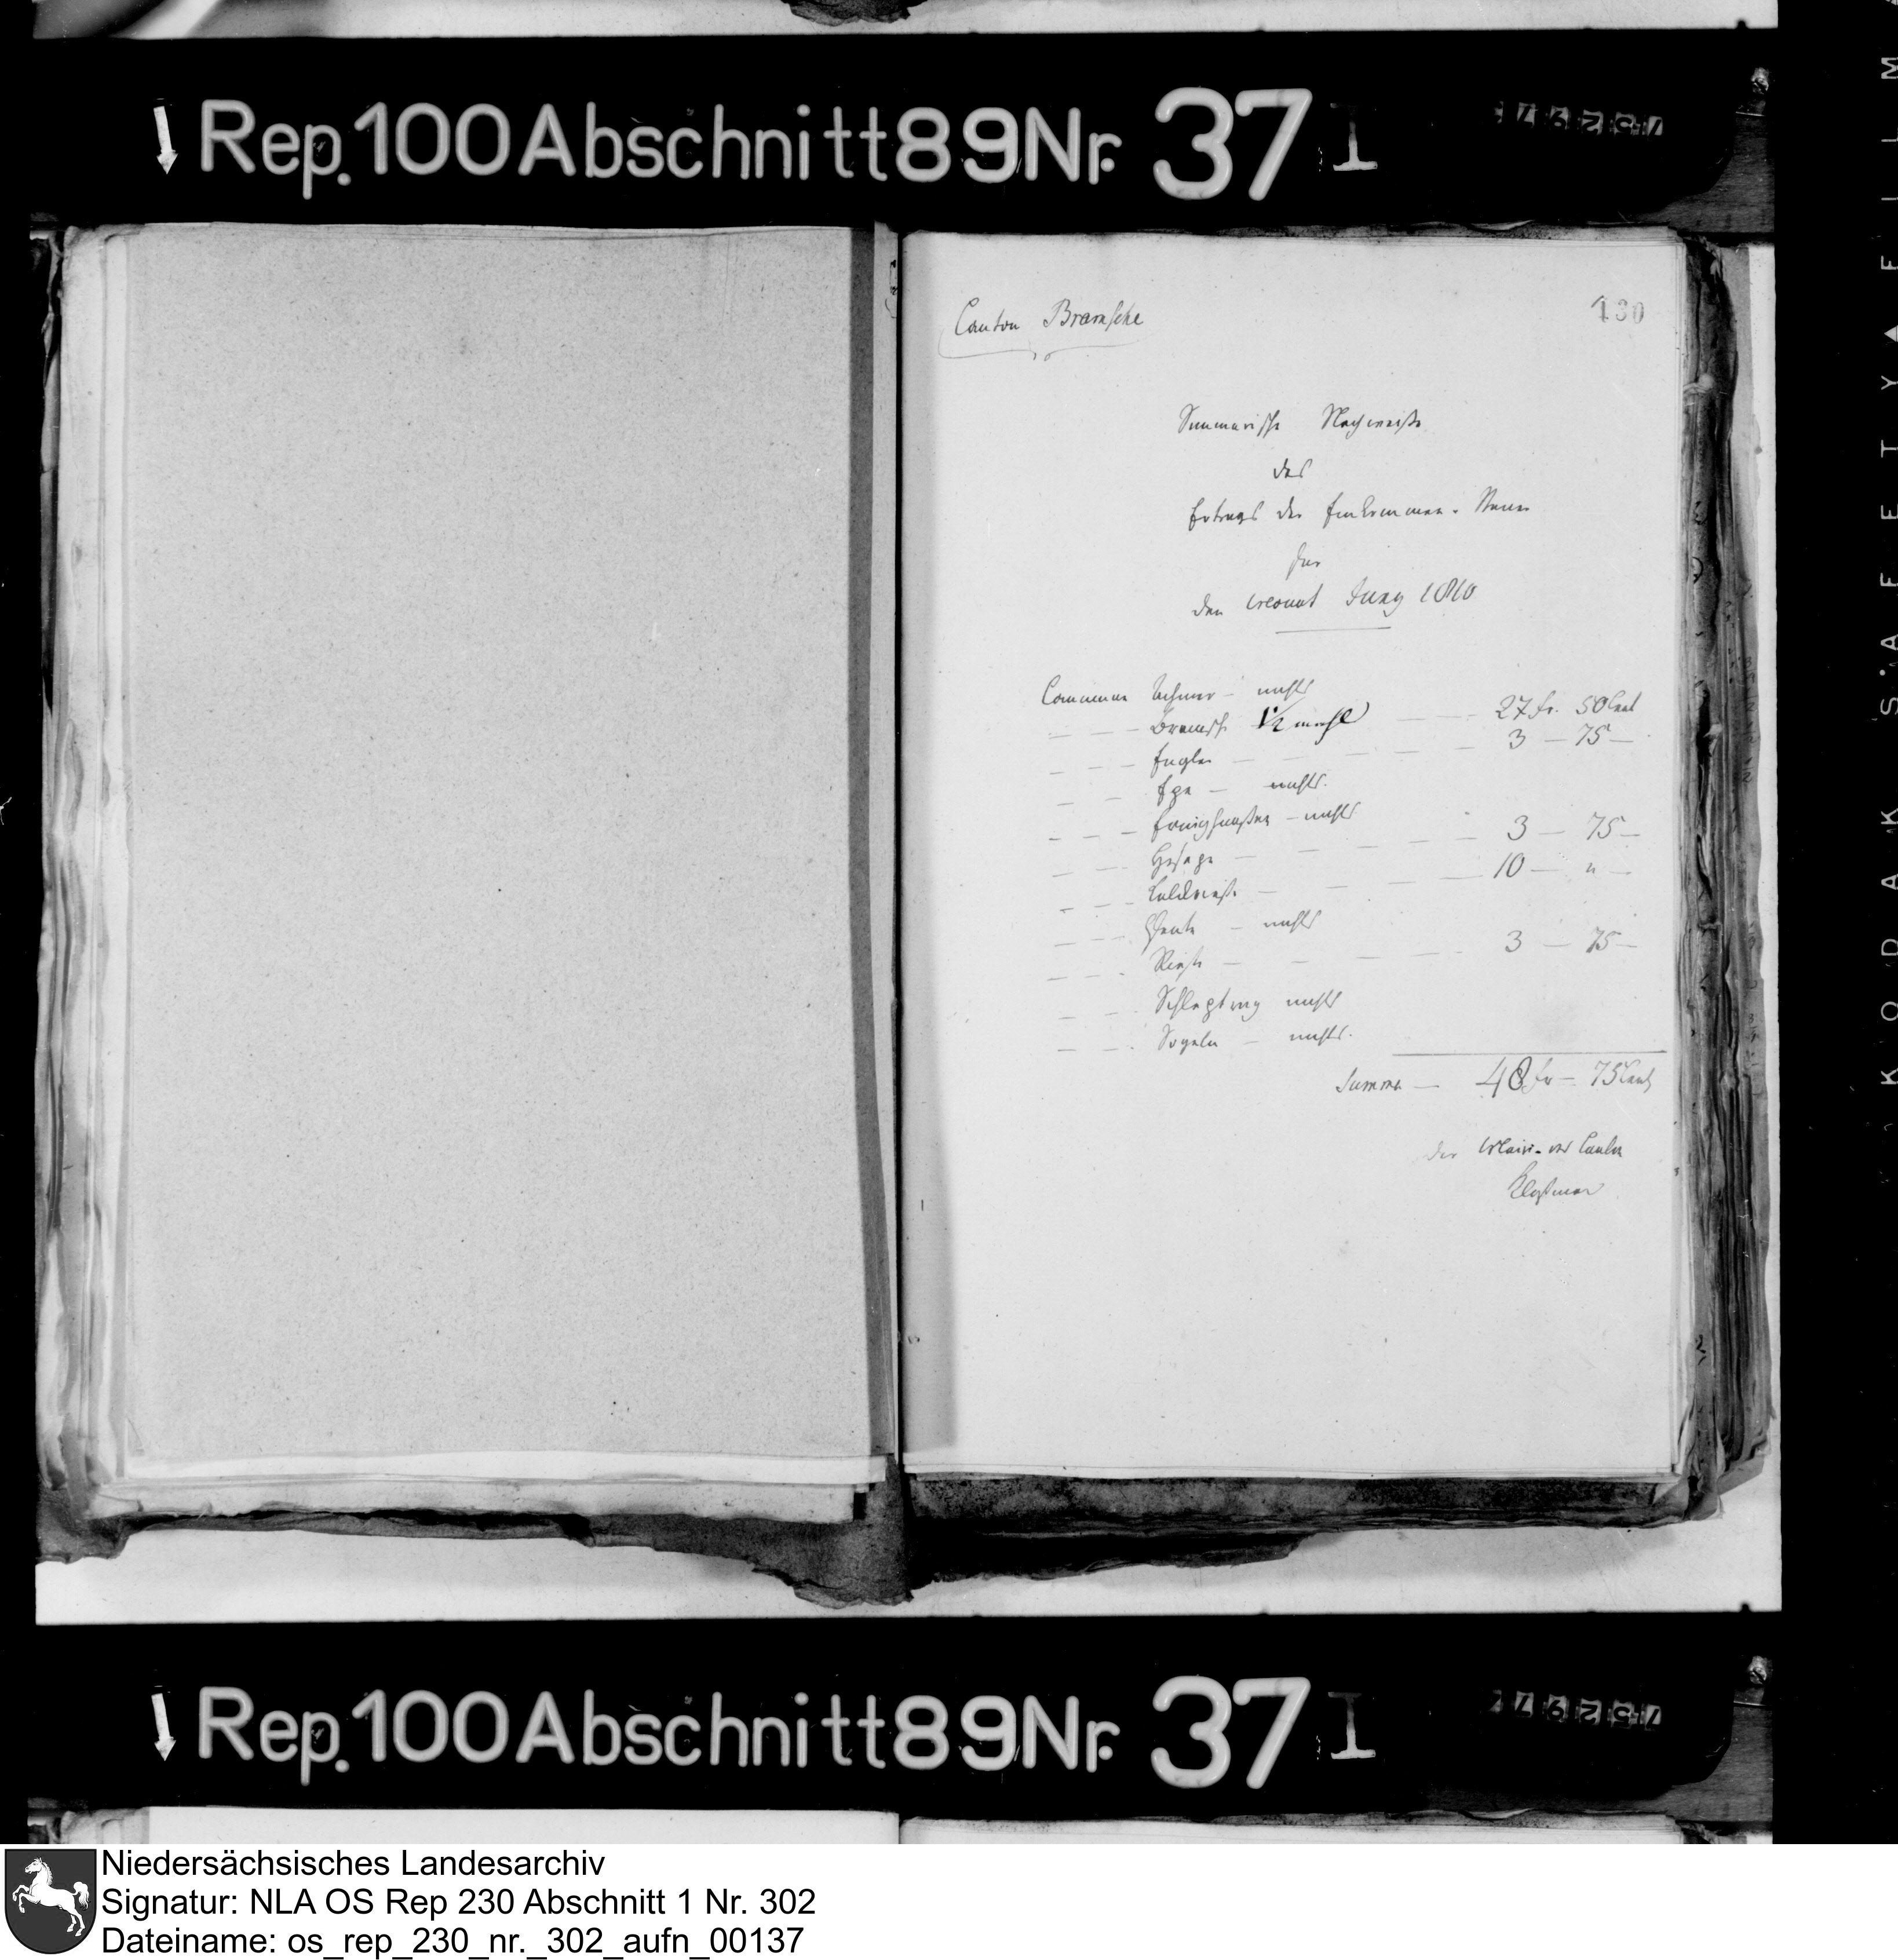 Rep. 100 Abschnitt 89 Nr. 37 I
75297
Canton Bramsche
130
Summarische Nachweise
des
Ertrags der Einkommen-Steuer
für
den Monat Juny 1810
Commune Achmer – nichts
– – – Bramsche 27 fr. 50 Cent
– – – Engter – – – – 3 – 75 –
– – – Epe – nichts.
– – – – nichts
– – – Hesepe – – – – 3 – 75 –
– – – – – – – 10 – " –
– – – Pente – nichts
– – – Rieste – – – – 3 – 75 –
– – – Schleptrup nichts
– – – Sögeln – nichts.
Summa – 48 fr – 75 Cent
der Maire des Canton
Rep. 100 Abschnitt 89 Nr. 37 I
75297
KODAK SAFETY ▲ FILM
Niedersächsisches Landesarchiv
Signatur: NLA OS Rep 230 Abschnitt 1 Nr. 302
Dateiname: os_rep_230_nr._302_aufn_00137